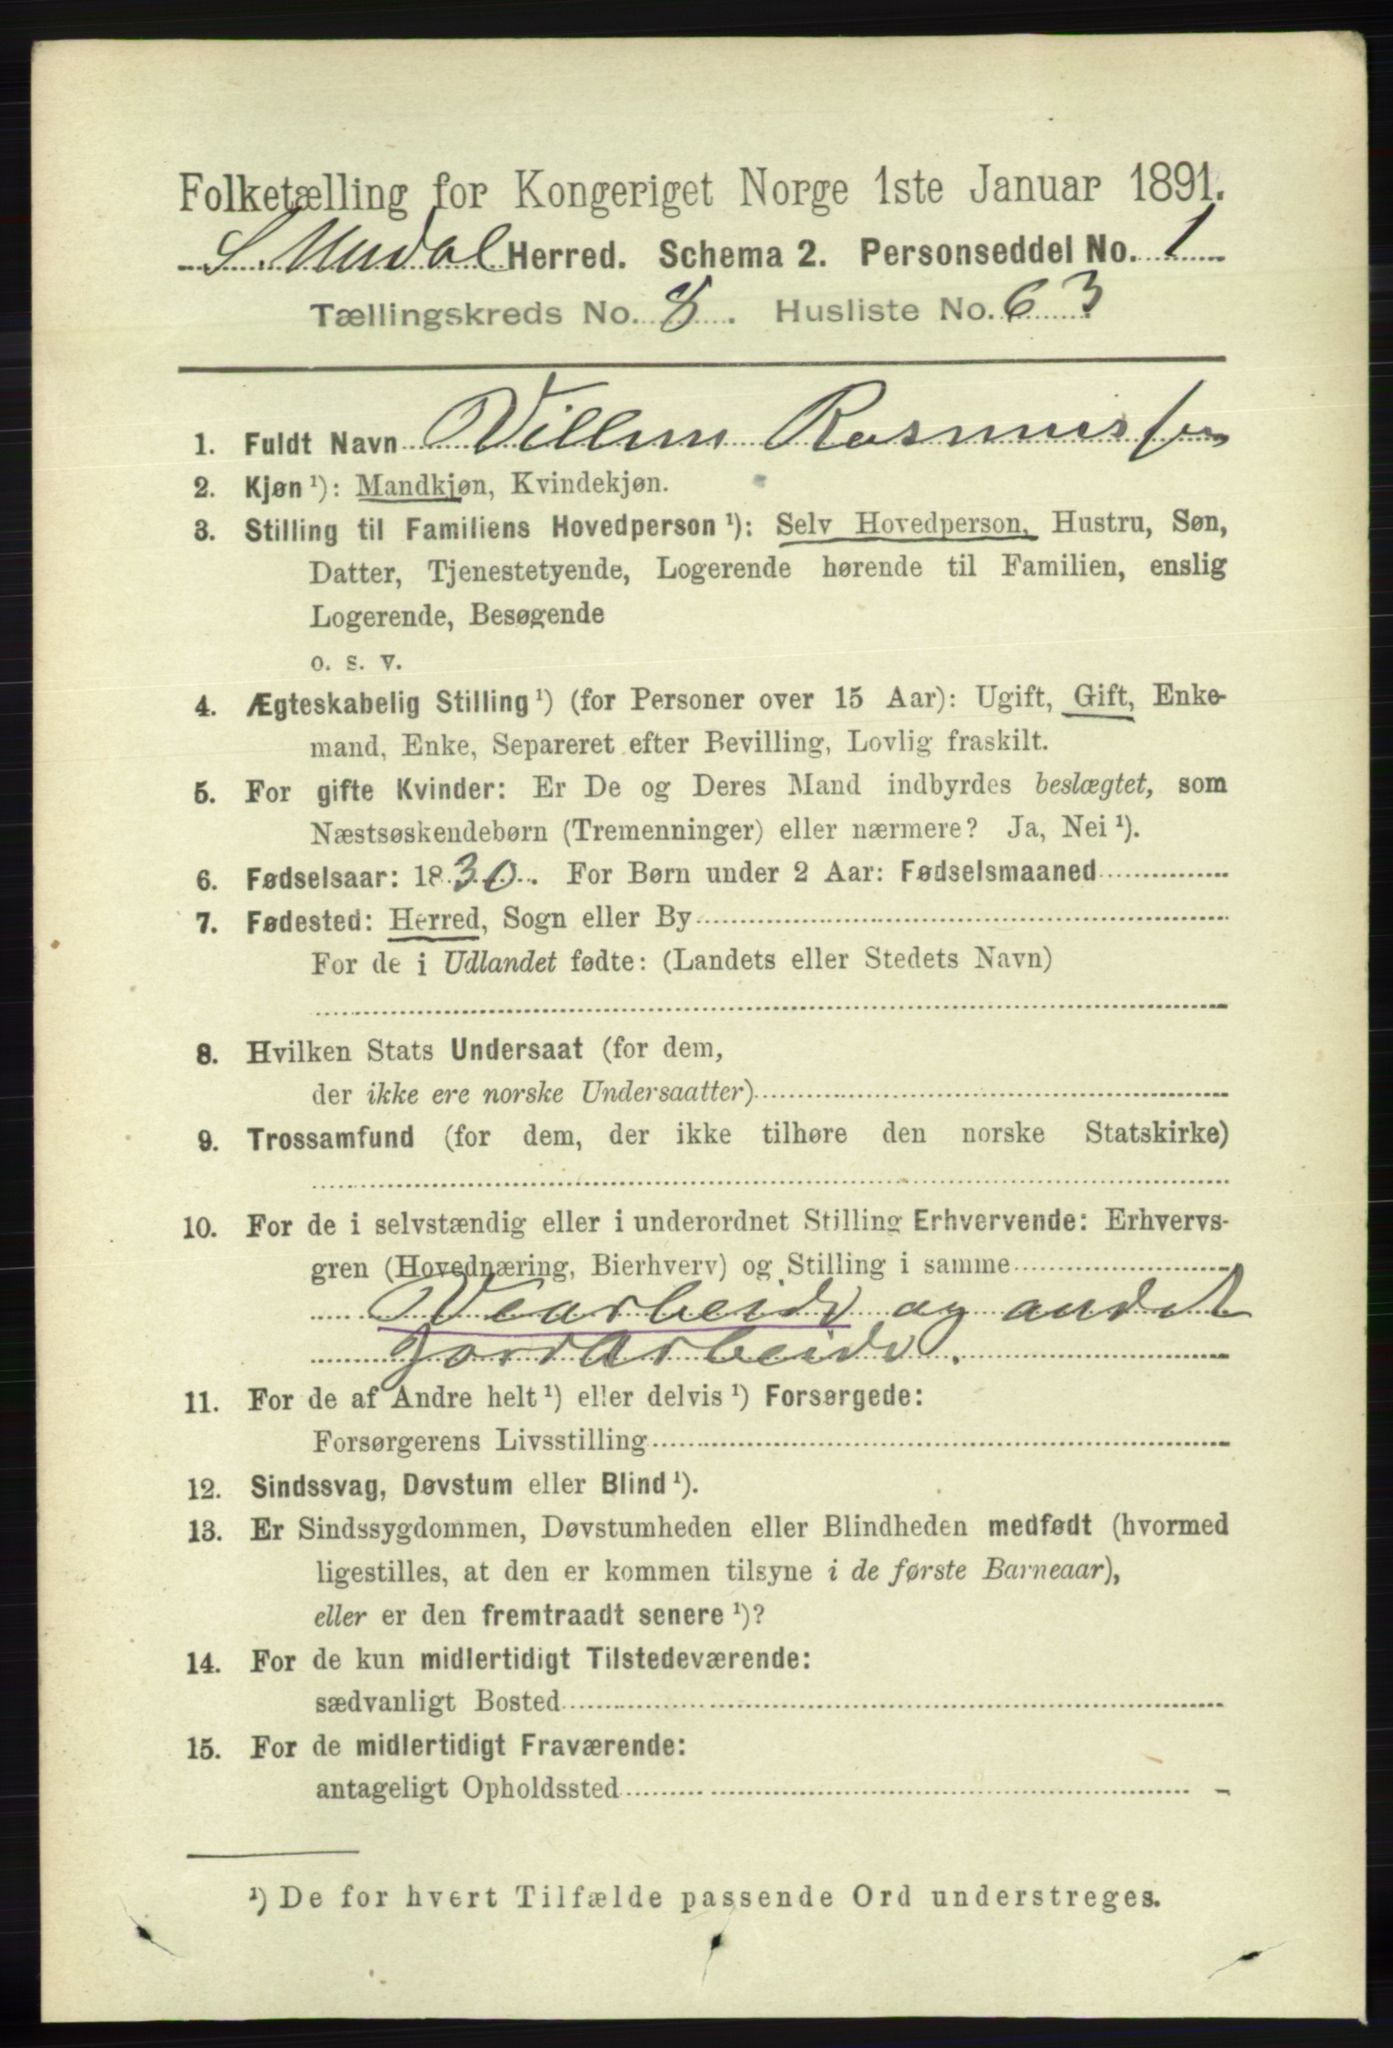 Folketælling for Kongeriget Norge 1ste Januar 1891.
S. Undal Herred. Schema 2. Personseddel No. 1
Tællingskreds No. 8. Husliste No. 63
1. Fuldt Navn Villum Rasmussen
2. Kjøn ¹): Mandkjøn, Kvindekjøn.
3. Stilling til Familiens Hovedperson ¹): Selv Hovedperson, Hustru, Søn,
Datter, Tjenestetyende, Logerende hørende til Familien, enslig
Logerende, Besøgende
o. s. v.
4. Ægteskabelig Stilling ¹) (for Personer over 15 Aar): Ugift, Gift, Enke-
mand, Enke, Separeret efter Bevilling, Lovlig fraskilt.
5. For gifte Kvinder: Er De og Deres Mand indbyrdes beslægtet, som
Næstsøskendebørn (Tremenninger) eller nærmere? Ja, Nei ¹).
6. Fødselsaar: 1830. For Børn under 2 Aar: Fødselsmaaned
7. Fødested: Herred, Sogn eller By
For de i Udlandet fødte: (Landets eller Stedets Navn)
8. Hvilken Stats Undersaat (for dem,
der ikke ere norske Undersaatter)
9. Trossamfund (for dem, der ikke tilhøre den norske Statskirke)
10. For de i selvstændig eller i underordnet Stilling Erhvervende: Erhvervs-
gren (Hovednæring, Bierhverv) og Stilling i samme
Vearbeide og andet
Jordarbeide.
11. For de af Andre helt ¹) eller delvis ¹) Forsørgede:
Forsørgerens Livsstilling
12. Sindssvag, Døvstum eller Blind ¹).
13. Er Sindssygdommen, Døvstumheden eller Blindheden medfødt (hvormed
ligestilles, at den er kommen tilsyne i de første Barneaar),
eller er den fremtraadt senere ¹)?
14. For de kun midlertidigt Tilstedeværende:
sædvanligt Bosted
15. For de midlertidigt Fraværende:
antageligt Opholdssted
¹) De for hvert Tilfælde passende Ord understreges.